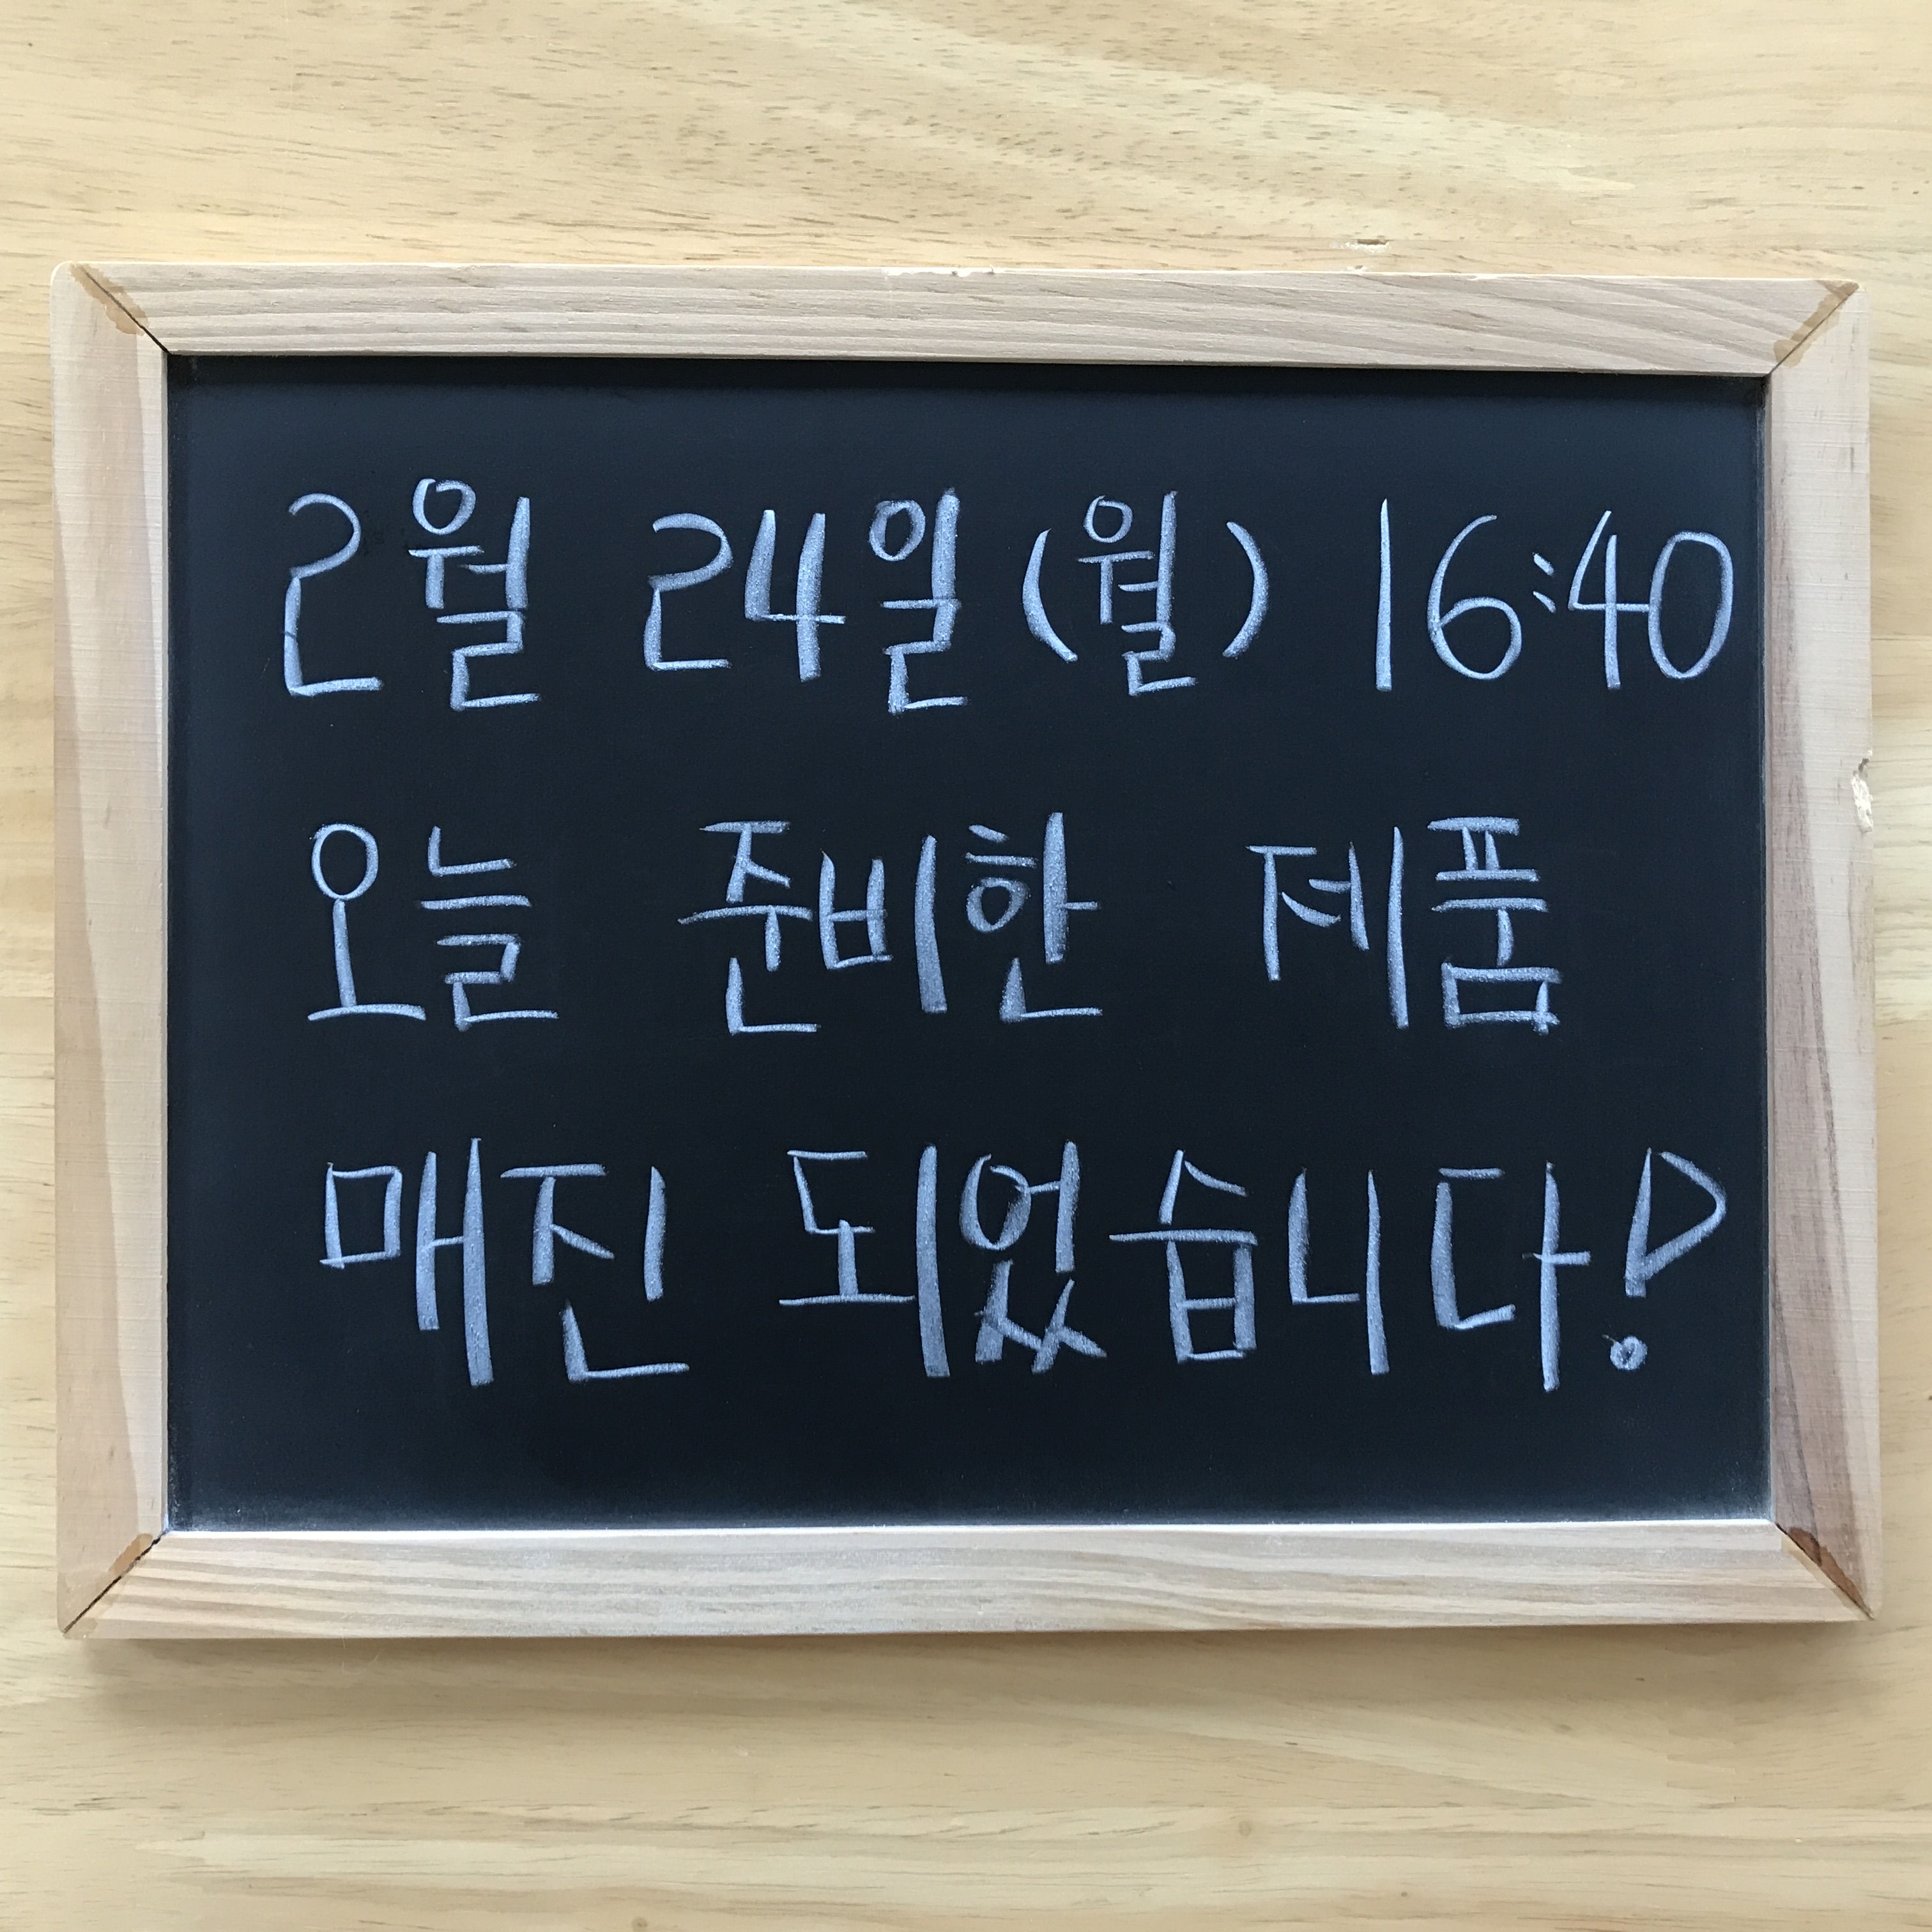 2월 24일(월) 16:40
오늘 준비한 제품
매진 되었습니다!